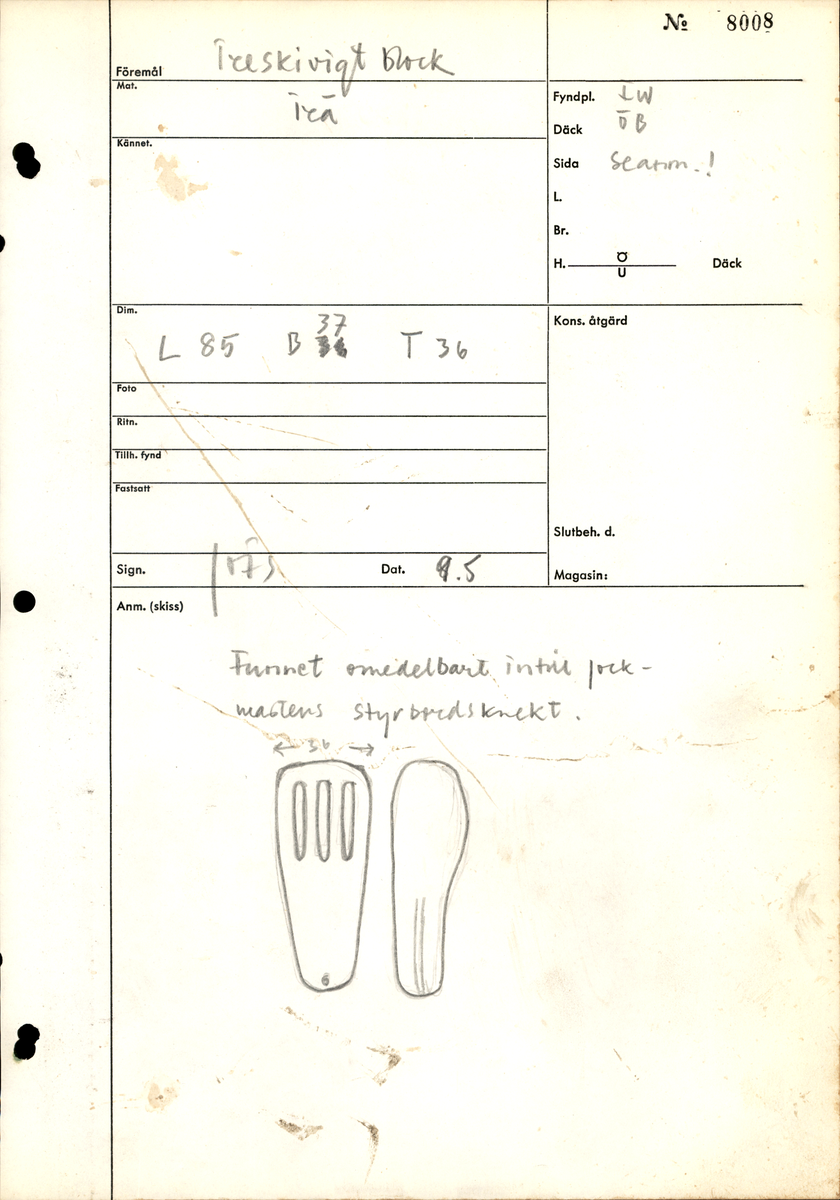 № 8008
Föremål Treskivigt block
Mat. Trä
Kännet.
Fyndpl. IW
Däck ÖB
Sida Se anm.!
L.
Br.
H. Ö U Däck
Dim. L 85 B 37 T 36
Foto
Ritn.
Tillh. fynd
Fastsatt
Kons. åtgärd
Slutbeh. d.
Sign. Dat. 9.5
Magasin:
Anm. (skiss)
Funnet omedelbart intill fock-
mastens styrbordsknekt.
← 36 →